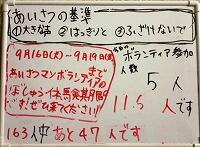 あいさつの基準
①大きな声 ②はっきりと ③ふざけないで
9月16日(火)〜9月19日(金)まで
あいさつマンボランティアの
ぼしゅう
です!ぜひ来てください!!
今日のボランティア参加
人数
5人
11.5人です
163人中あと47人です